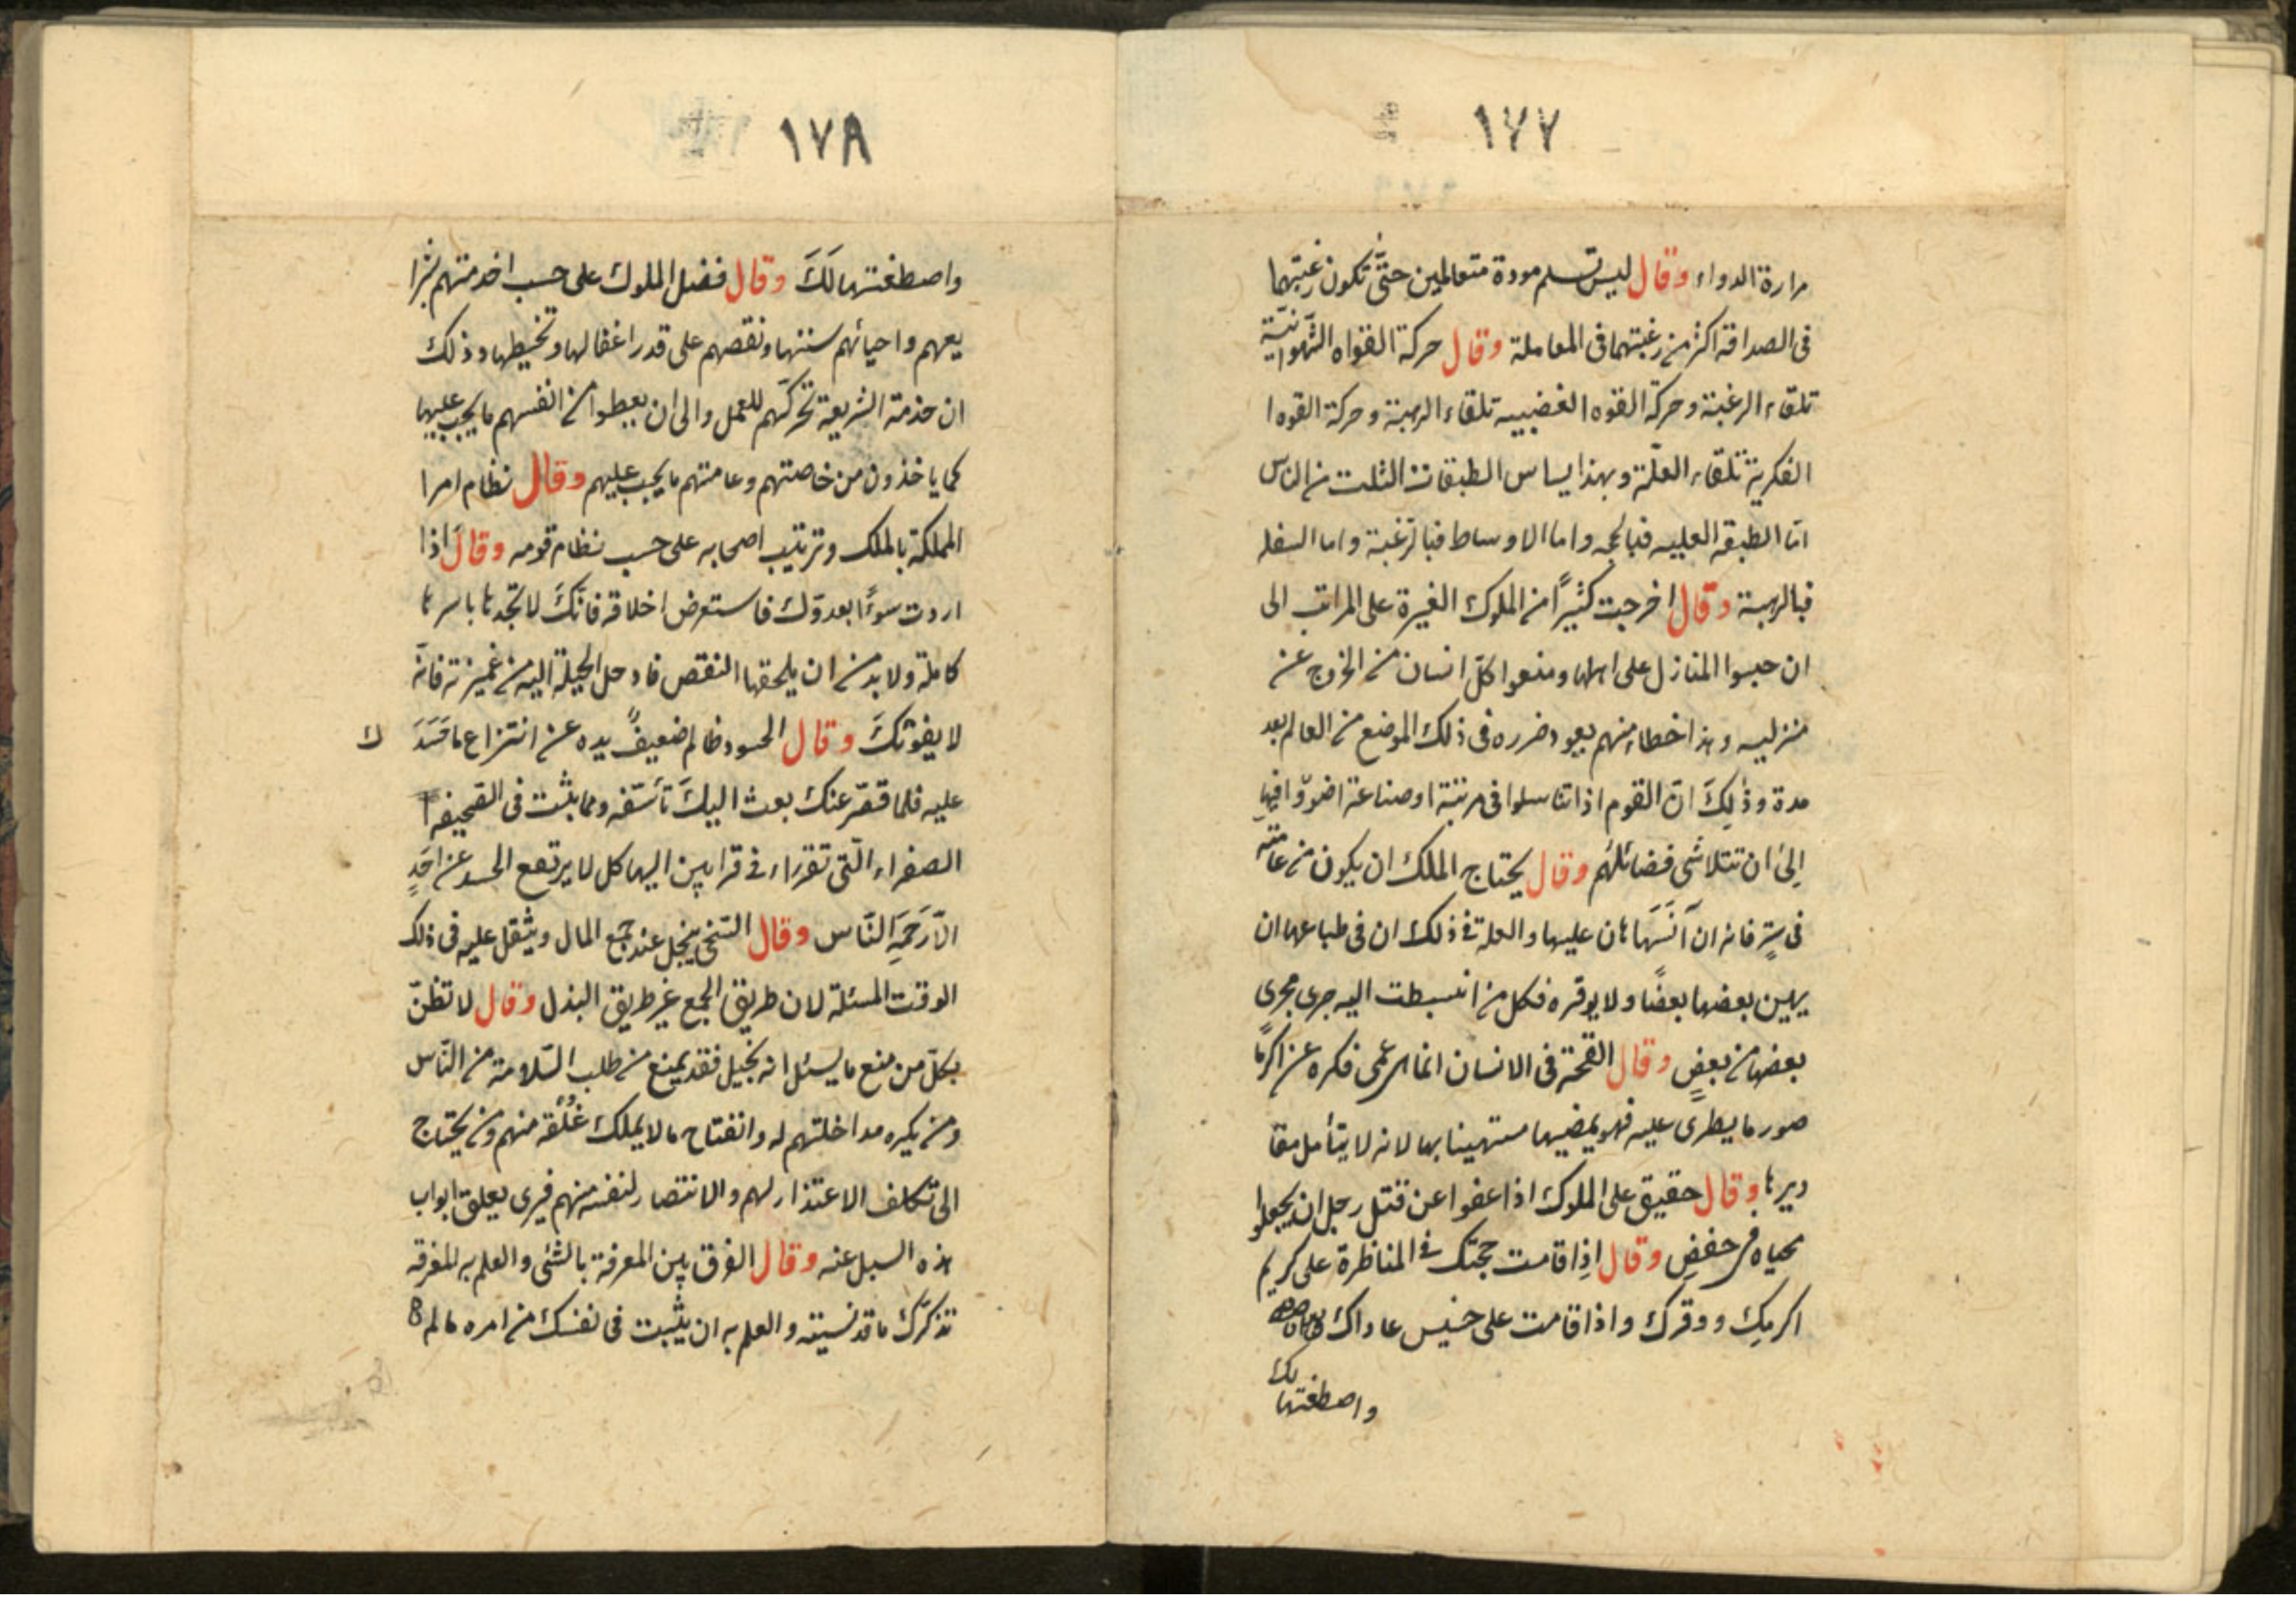 ١٧٧
مرارة الدواء وقال ليس تسلم مودة متعاملين حتّى تكون رغبتهما
فى الصداقة اكثر من رغبتهما فى المعاملة وقال حركة القواه الشّهوانيّة
تلقاء الرغبة وحركة القوه الغضبيه تلقاء الرهبة وحركة القوه ا
الفكرية تلقاء العلّة وبهذا يساس الطبقات الثلث من الناس
امّا الطبقه العليه فبالحجه واما الاوساط فبالرّغبة واما السفله
فبالرهبة وقال اخرجت كثيرًا من الملوك الغيرة على المراتب الى
ان حبسوا المنازل على اهلها ومنعوا كلّ انسان من الخروج عن
منزليه وهذا خطاء منهم يعود ضرره فى ذلك الموضع من العالم بعد
مدة وذلِكَ انّ القوم اذا تناسلوا فى مرتبة او صناعة اضوّوا فيها
اِلىٰ ان تتلاشى فضائلهُم وقال يحتاج الملك ان يكون من عامّته
فى سِترٍ فانه ان آنَسَهَا هان عليها والعلة فى ذلك ان فى طباعها ان
يهين بعضها بعضًا ولا يوقره فكل من انبسطت اليه جرى مجرى
بعضها من بعضٍ وقال القحة فى الانسان انما هى عمى فكره عن اكرمًا
صور ما يطرى عليه فهو يمضيها مستهينا بها لانه لا يتأمل مقا
ديرها وقال حقيق على الملوك اذا عفوا عن قتل رجل ان يجعلوا
محياه فى خفضٍ وقال اذِا قامت حجتك فى المناظرة على كريم
اكرمِك ووقرك واذا قامت على خسيس عاداك
لك
واصطغتها
١٧٨
واصطغتها لَكَ وقال فضل الملوك على حسب اخدمتهم شرا
يعهم واحيائهم سننها ونقصهم على قدر اغفالها وتخيطها وذلك
ان خدمة الشريعة تحركّهم للعمل والى ان يعطوا من انفسهم ما يجب عليها
كما ياخذون من خاصتهم وعامتهم ما يجب عليهم وقال نظام امرا
المملكة بالملك وترتيب اصحابه على حسب نظام قومه وقال اذا
اردت سوءًا بعدوّك فاستعرض اخلاقه فانّكَ لا تجدها باسرها
كاملة ولا بد من ان يلحقها النقص فادحل الحيلة اليه من غميزته فانّه
لا يفوتكَ وقال الحسود ظالم ضعيفً يده عن انتزاع ما حَسَدَ ك
عليه فلما قصّر عنك بعث اليكَ تأسّفه ومما يثبت فى الصّحيفه ا
الصفراء الّتى تقراء فى قرابين الهياكل لا يرتفع الحسد عن احَدٍ
الّا رَحَمِه النّاس وقال السّخى يبخل عند جمع المال ويثقل عليه فى ذلك
الوقت المسئلة لان طريق الجمع غير طريق البذل وقال لا تظنّ
بكلّ من منع ما يسئل انه بخيل فقد يمنع من طلب السّلامة من النّاس
ومن يكره مداخلتهم له وانفتاح ما لا يملك غُلَقه منهم ومن يحتاج
الى تكلف الاعتذار لهم والانتصار لنفسه منهم فيرى يعلق ابواب
هذه السبل عنه وقال الفرق بين المعرفة بالشئى والعلم به المغرقه
تذكّرك ما قد نسيته والعلم به ان يثّبت فى نفسك من امره مالم